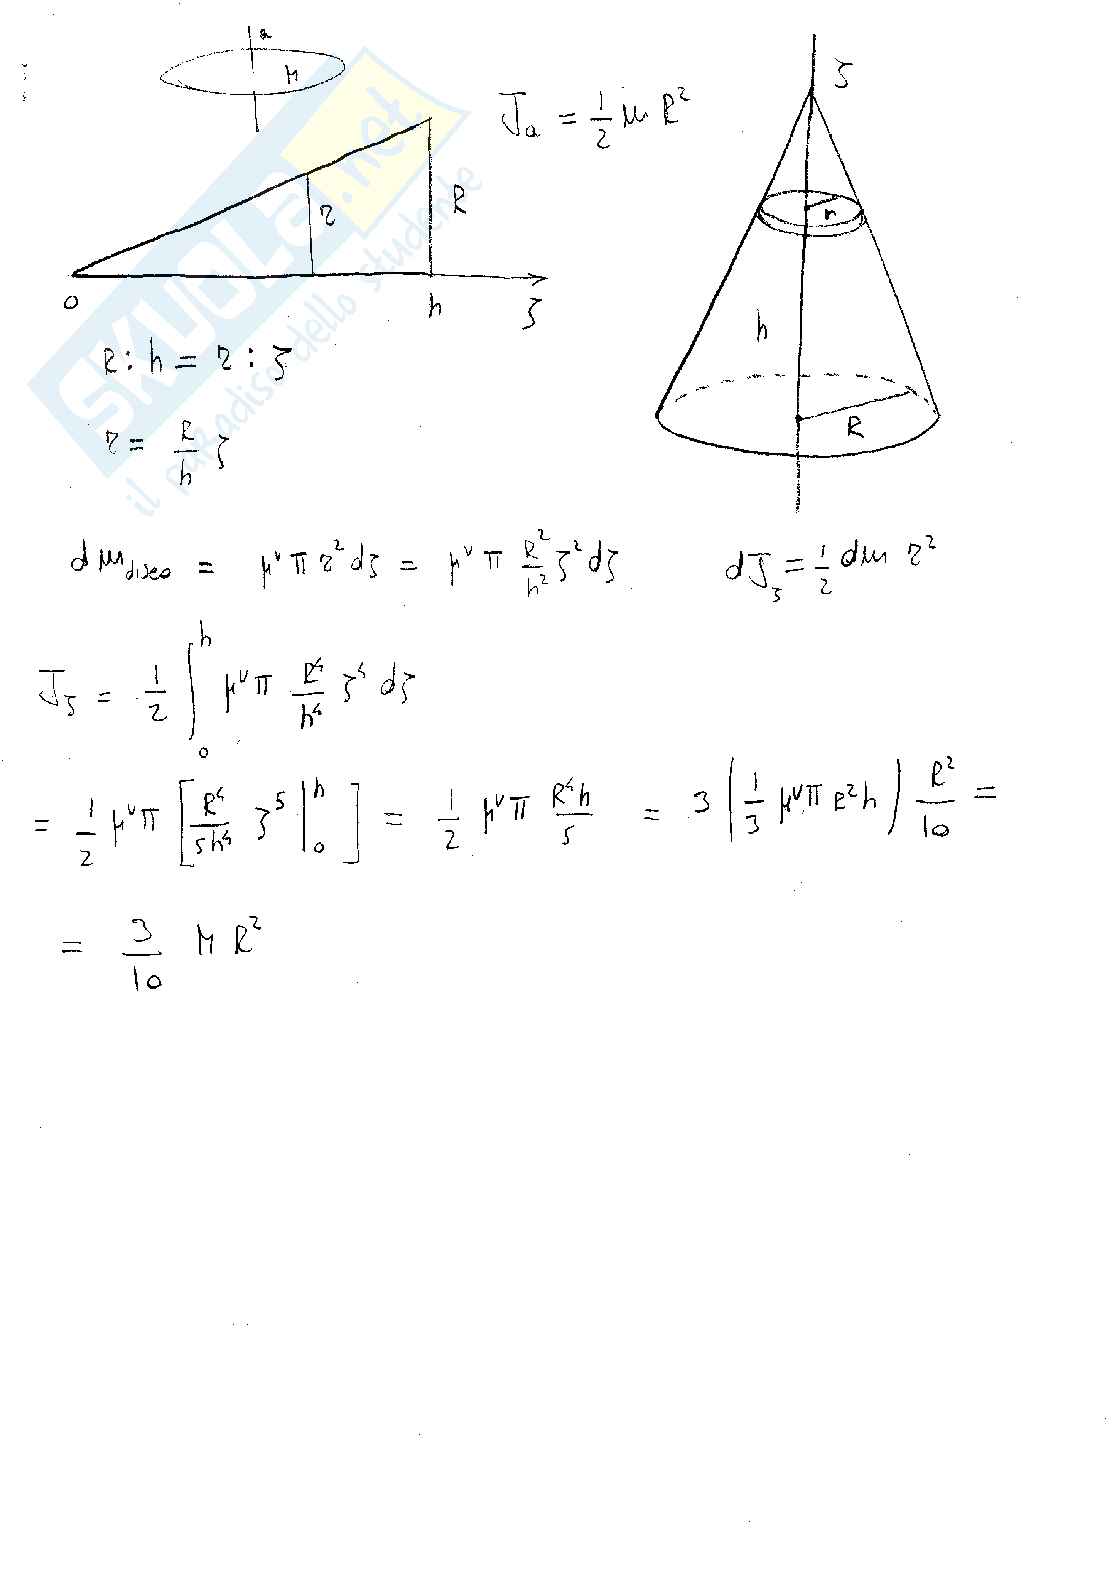 a
M
J_a = 1/2 m R²
ζ
r
r
R
0
h
ζ
h
R
R : h = r : ζ
r = R/h ζ
dm_disco = μ^v π r² dζ = μ^v π R²/h² ζ² dζ
dJ_ζ = 1/2 dm r²
J_ζ = 1/2 ∫₀^h μ^v π R⁴/h⁴ ζ⁴ dζ
= 1/2 μ^v π [ R⁴/5h⁴ ζ⁵ |₀^h ] = 1/2 μ^v π R⁴h/5 = 3 ( 1/3 μ^v π R² h ) R²/10 =
= 3/10 M R²
SKUOLA.net
il paradiso dello studente